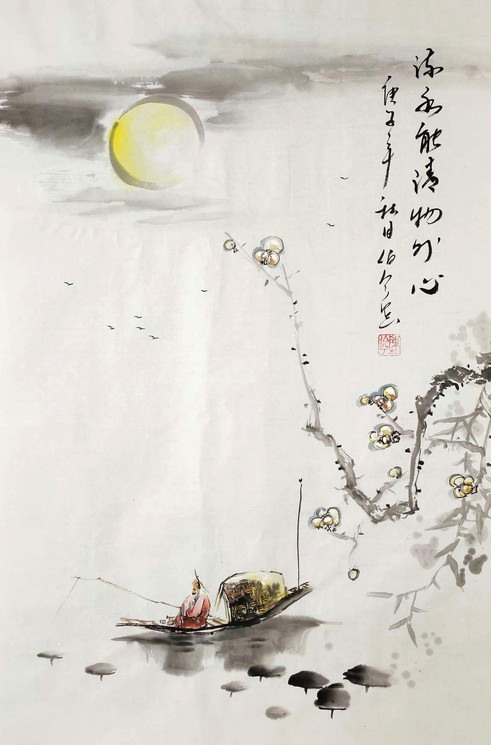 流水能清物外心
庚子年秋日伯